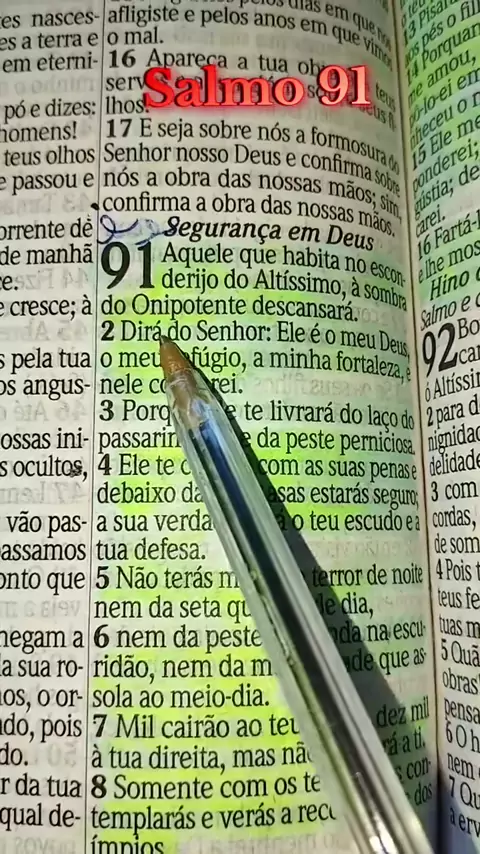 tes nasces-
es a terra e
em eterni-
pó e dizes:
homens!
teus olhos
e passou e
orrente de
de manhã
ce.
e cresce; à
s pela tua
os angus-
ossas ini-
s ocultos,
vão pas-
assamos
onto que
hegam a
a sua ro-
nos, o or-
do, pois
do.
r da tua
qual de-
afligiste e pelos anos em que vimos
o mal.
16 Apareça a tua
lhos
Salmo 91
17 E seja sobre nós a formosura do
Senhor nosso Deus e confirma sobre
nós a obra das nossas mãos; sim,
confirma a obra das nossas mãos.
Segurança em Deus
91 Aquele que habita no escon-
derijo do Altíssimo, à sombra
do Onipotente descansará.
2 Dirá do Senhor: Ele é o meu Deus,
o meu refúgio, a minha fortaleza, e
nele rei.
3 Porq e te livrará do laço do
passarin e da peste perniciosa.
4 Ele te c com as suas penas e
debaixo da asas estarás seguro;
a sua verda o teu escudo e a
tua defesa.
5 Não terás terror de noite
nem da seta qu de dia,
6 nem da peste da na escu-
ridão, nem da m ade que as-
sola ao meio-dia.
7 Mil cairão ao teu dez mil
à tua direita, mas nã rá a ti.
8 Somente com os te con-
templarás e verás a rec dos
ímpios.
16 Fartá-
lhe mos
Hino d
Salmo e c
92 Bo
car
ó Altíssim
2 para d
nignidad
delidade
3 com
cordas,
de som
4 Pois t
teus fe
tuas m
5 Quã
obras
pensa
6 O h
nem
7 Qu
a erv